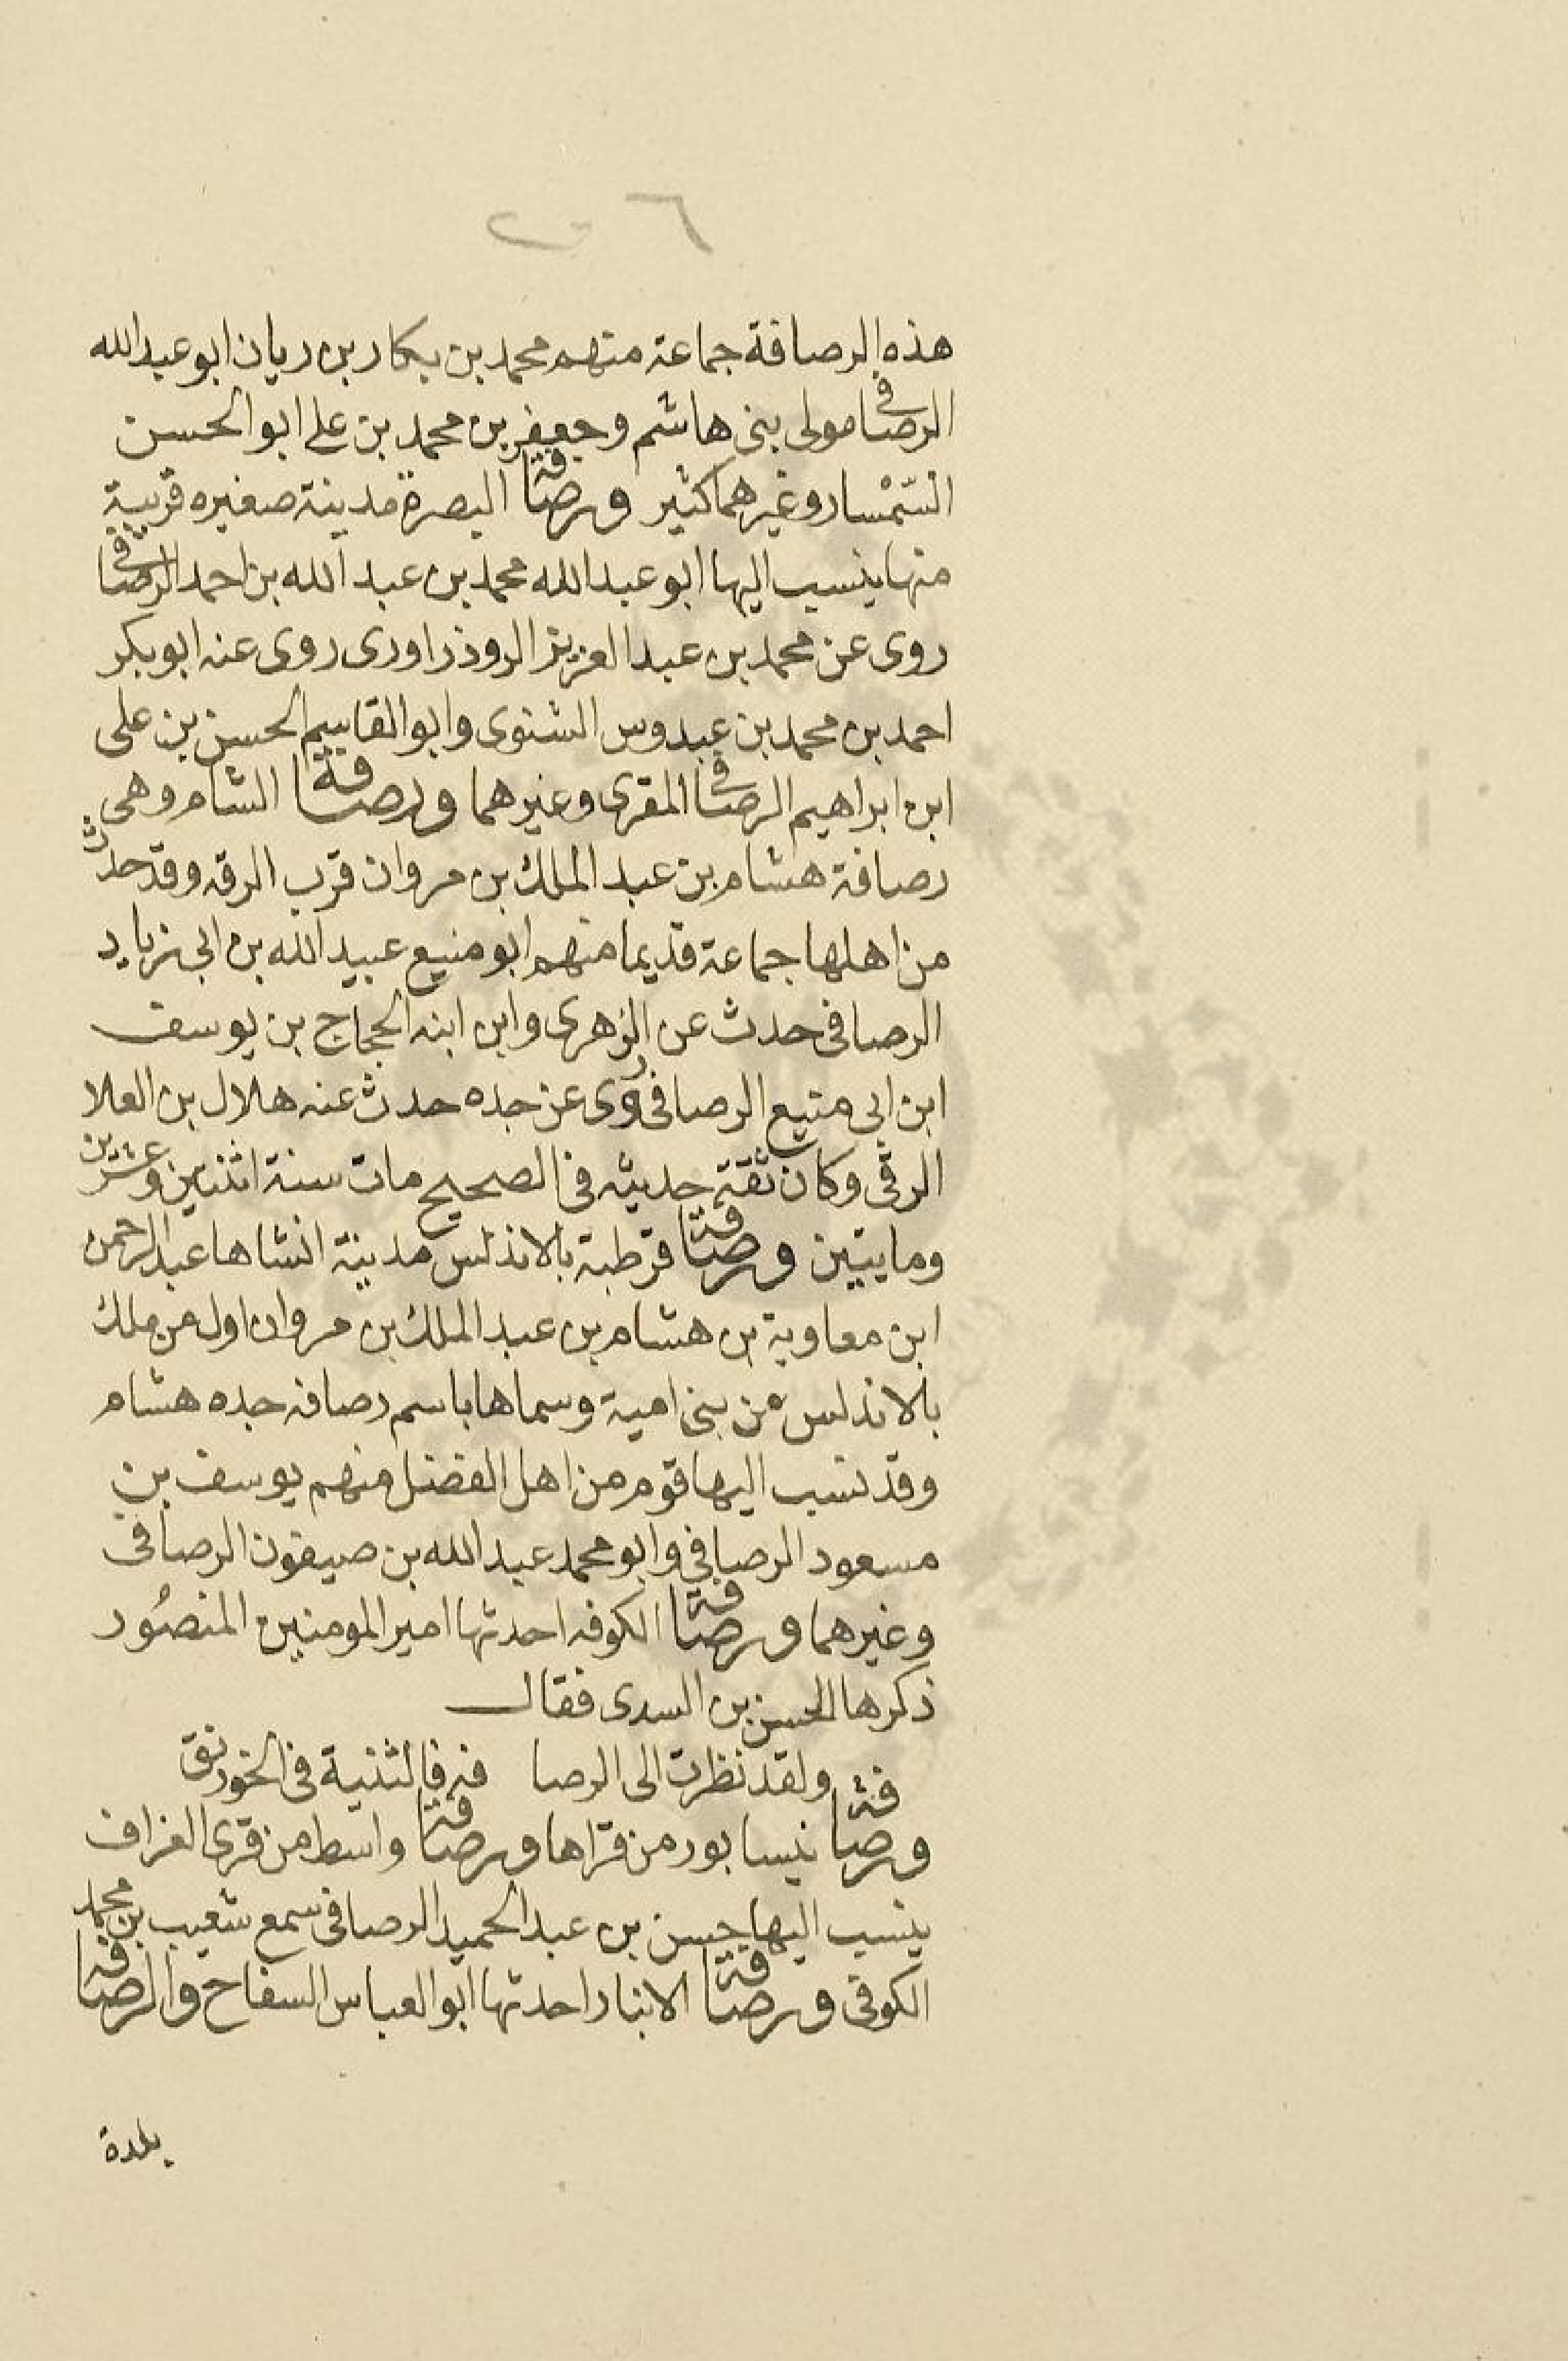 ٢٠٦
هذه الرصافة جماعة منهم محمد بن بكار بن ريان ابو عبد الله
الرصافى مولى بنى هاشم وجعفر بن محمد بن على ابو الحسن
السّمْسار وغيرهما كثير ورصافة البصرة مدينة صغيره قريبة
منها ينسب اليها ابو عبد الله محمد بن عبد الله بن احمد الرصافى
روى عن محمد بن عبد العزيز الروذراورى روى عنه ابو بكر
احمد بن محمد بن عبدوس الشنوى وابو القاسم الحسن بن على
ابن ابراهيم الرصافى المقرى وغيرهما ورصافة الشام وهى
رصافة هشام بن عبد الملك بن مروان قرب الرقه وقد حدث
من اهلها جماعة قديما منهم ابو منيع عبيد الله بن ابى زياد
الرصافى حدث عن الزهرى وابن ابنه الحجاج بن يوسف
ابن ابى منيع الرصافى روى عن جده حدث عنه هلال بن العلا
الرقى وكان ثقة حديثه فى الصحيح مات سنة اثنين وعشرين
ومايتين ورصافة قرطبة بالاندلس مدينة انشاها عبد الرحمن
ابن معاوية بن هشام بن عبد الملك بن مروان اول من ملك
بالاندلس من بنى امية وسماها باسم رصافه جده هشام
وقد نسب اليها قوم من اهل الفضل منهم يوسف بن
مسعود الرصافى وابو محمد عبد الله بن صيفون الرصافى
وغيرهما ورصافة الكوفه احدثها امير المومنين المنصُور
ذكرها الحسن بن السدى فقال
ولقد نظرت الى الرصا فه فالثنية فى الخورنق
ورصافة نيسابور من قراها ورصافة واسط من قرى الغراف
ينسب اليها حسن بن عبد الحميد الرصافى سمع شعيب بن محمد
الكوفى ورصافة الانبار احدثها ابو العباس السفاح والرصافة
بلدة